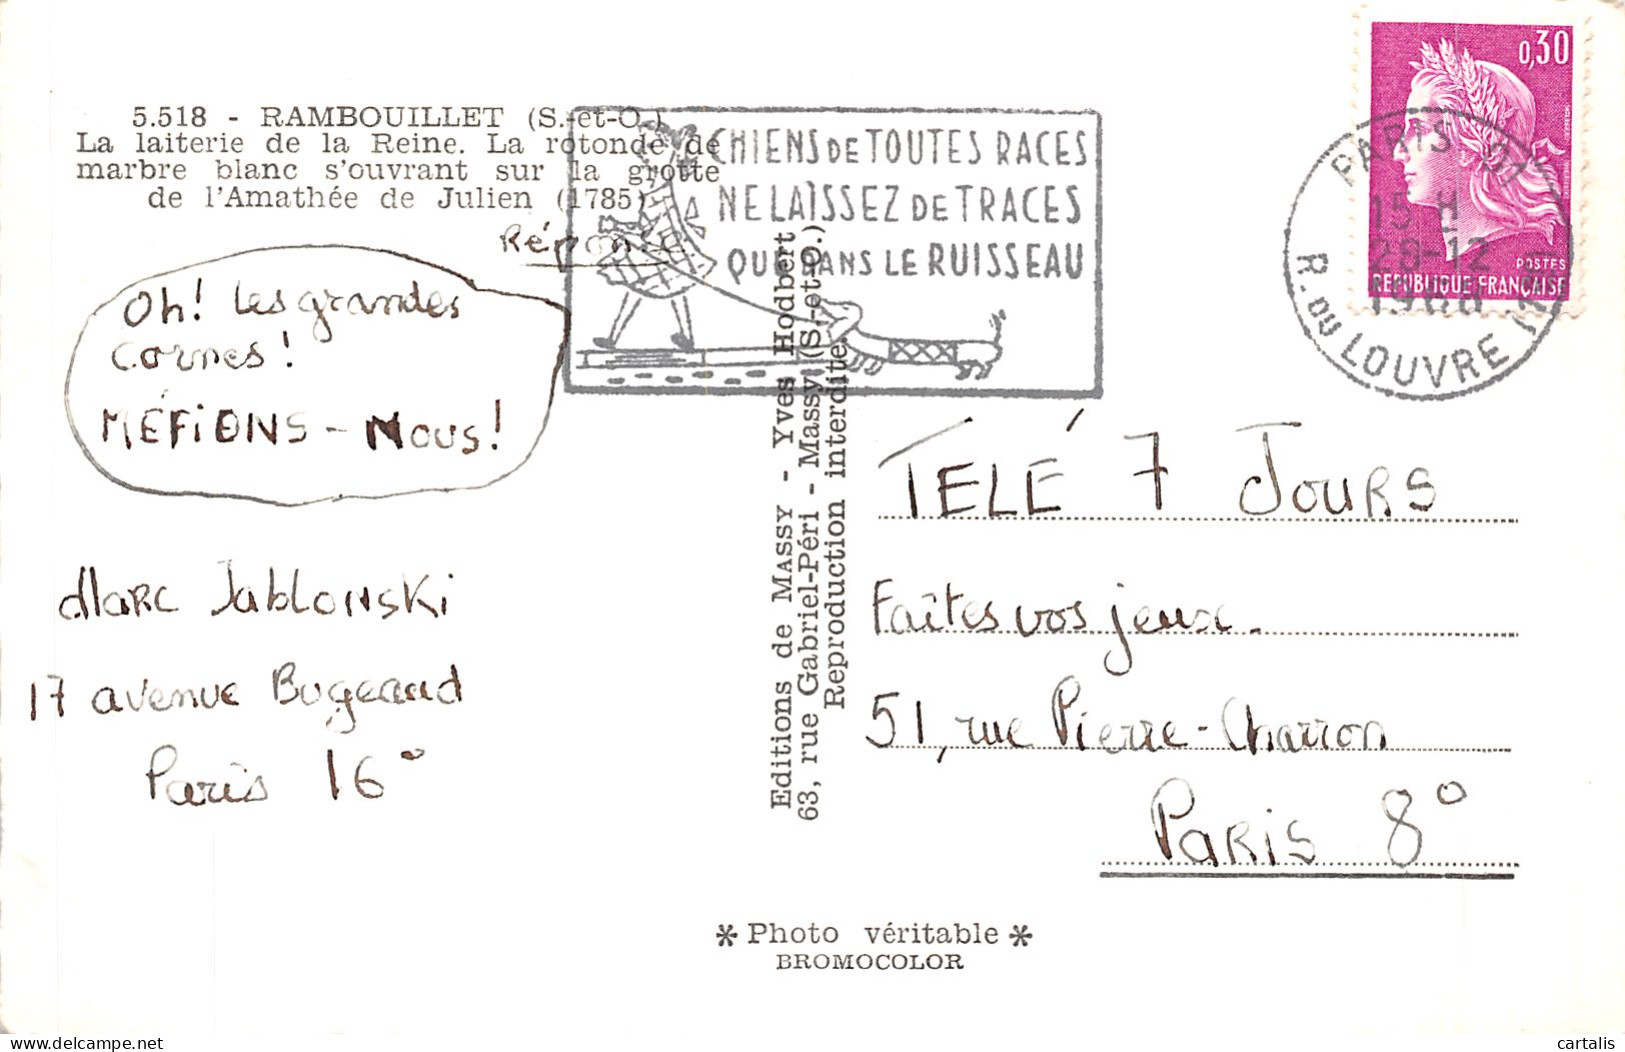 5.518 - RAMBOUILLET (S.-et-O.)
La laiterie de la Reine. La rotonde de
marbre blanc s'ouvrant sur la grotte
de l'Amathée de Julien (1785)
Réponse
Oh! Les grandes
cornes!
MÉFIONS-NOUS!
Marc Jablonski
17 avenue Bugeaud
Paris 16°
CHIENS DE TOUTES RACES
NE LAISSEZ DE TRACES
QUE DANS LE RUISSEAU
Editions de MASSY - Yves Hodbert
63, rue Gabriel-Péri - Massy (S.-et-O.)
Reproduction interdite.
0,30
POSTES
REPUBLIQUE FRANÇAISE
PARIS 01
15 H
28-12
R. DU LOUVRE
TÉLÉ 7 JOURS
Faîtes vos jeux.
51, rue Pierre-Charron
PARIS 8°
* Photo véritable *
BROMOCOLOR
delcampe.net
cartalis